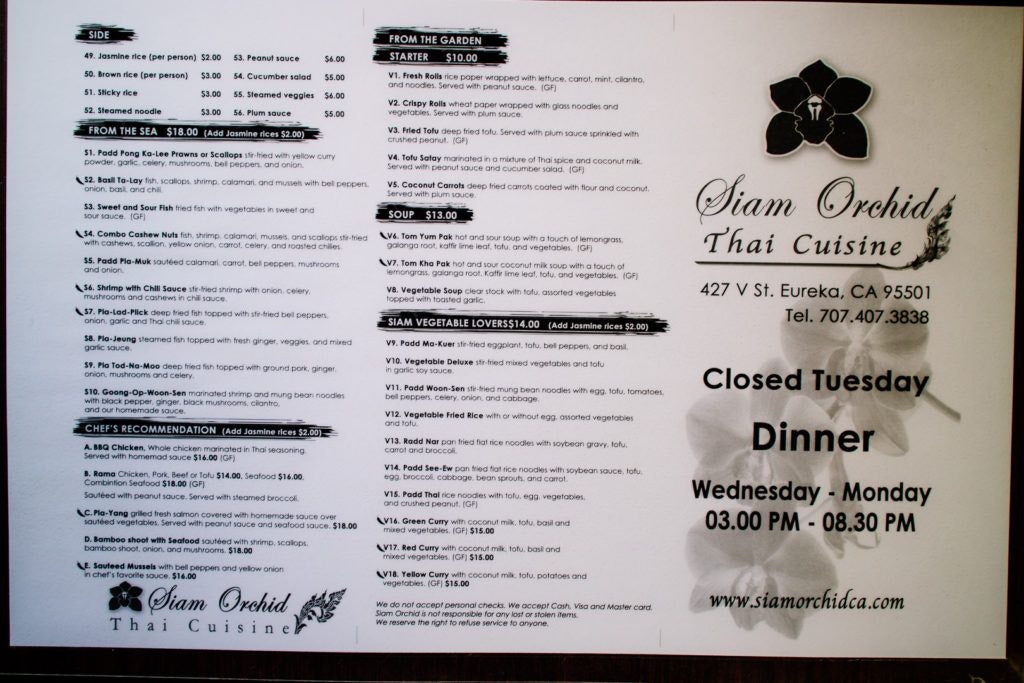 SIDE
49. Jasmine rice (per person) $2.00 53. Peanut sauce $6.00
50. Brown rice (per person) $3.00 54. Cucumber salad $5.00
51. Sticky rice $3.00 55. Steamed veggies $6.00
52. Steamed noodle $3.00 56. Plum sauce $5.00
FROM THE SEA $18.00 (Add Jasmine rices $2.00)
S1. Padd Pong Ka-Lee Prawns or Scallops stir-fried with yellow curry
powder, garlic, celery, mushrooms, bell peppers, and onion.
S2. Basil Ta-Lay fish, scallops, shrimp, calamari, and mussels with bell peppers,
onion, basil, and chili.
S3. Sweet and Sour Fish fried fish with vegetables in sweet and
sour sauce. (GF)
S4. Combo Cashew Nuts fish, shrimp, calamari, mussels, and scallops stir-fried
with cashews, scallion, yellow onion, carrot, celery, and roasted chilies.
S5. Padd Pla-Muk sautéed calamari, carrot, bell peppers, mushrooms
and onion.
S6. Shrimp with Chili Sauce stir-fried shrimp with onion, celery,
mushrooms and cashews in chili sauce.
S7. Pla-Lad-Plick deep fried fish topped with stir-fried bell peppers,
onion, garlic and Thai chili sauce.
S8. Pla-Jeung steamed fish topped with fresh ginger, veggies, and mixed
garlic sauce.
S9. Pla Tod-Na-Moo deep fried fish topped with ground pork, ginger,
onion, mushrooms and celery.
S10. Goong-Op-Woon-Sen marinated shrimp and mung bean noodles
with black pepper, ginger, black mushrooms, cilantro,
and our homemade sauce.
CHEF'S RECOMMENDATION (Add Jasmine rices $2.00)
A. BBQ Chicken, Whole chicken marinated in Thai seasoning.
Served with homemad sauce $16.00 (GF)
B. Rama Chicken, Pork, Beef or Tofu $14.00, Seafood $16.00,
Combintion Seafood $18.00 (GF)
Sautéed with peanut sauce. Served with steamed broccoli.
C. Pla-Yang grilled fresh salmon covered with homemade sauce over
sautéed vegetables. Served with peanut sauce and seafood sauce. $18.00
D. Bamboo shoot with Seafood sautéed with shrimp, scallops,
bamboo shoot, onion, and mushrooms. $18.00
E. Sauteed Mussels with bell peppers and yellow onion
in chef's favorite sauce. $16.00
Siam Orchid
Thai Cuisine
FROM THE GARDEN
STARTER $10.00
V1. Fresh Rolls rice paper wrapped with lettuce, carrot, mint, cilantro,
and noodles. Served with peanut sauce. (GF)
V2. Crispy Rolls wheat paper wrapped with glass noodles and
vegetables. Served with plum sauce.
V3. Fried Tofu deep fried tofu. Served with plum sauce sprinkled with
crushed peanut. (GF)
V4. Tofu Satay marinated in a mixture of Thai spice and coconut milk.
Served with peanut sauce and cucumber salad. (GF)
V5. Coconut Carrots deep fried carrots coated with flour and coconut.
Served with plum sauce.
SOUP $13.00
V6. Tom Yum Pak hot and sour soup with a touch of lemongrass,
galanga root, kaffir lime leaf, tofu, and vegetables. (GF)
V7. Tom Kha Pak hot and sour coconut milk soup with a touch of
lemongrass, galanga root. Kaffir lime leaf, tofu, and vegetables. (GF)
V8. Vegetable Soup clear stock with tofu, assorted vegetables
topped with toasted garlic.
SIAM VEGETABLE LOVERS$14.00 (Add Jasmine rices $2.00)
V9. Padd Ma-Kuer stir-fried eggplant, tofu, bell peppers, and basil.
V10. Vegetable Deluxe stir-fried mixed vegetables and tofu
in garlic soy sauce.
V11. Padd Woon-Sen stir-fried mung bean noodles with egg, tofu, tomatoes,
bell peppers, celery, onion, and cabbage.
V12. Vegetable Fried Rice with or without egg, assorted vegetables
and tofu.
V13. Radd Nar pan fried flat rice noodles with soybean gravy, tofu,
carrot and broccoli.
V14. Padd See-Ew pan fried flat rice noodles with soybean sauce, tofu,
egg, broccoli, cabbage, bean sprouts, and carrot.
V15. Padd Thai rice noodles with tofu, egg, vegetables,
and crushed peanut. (GF)
V16. Green Curry with coconut milk, tofu, basil and
mixed vegetables. (GF) $15.00
V17. Red Curry with coconut milk, tofu, basil and
mixed vegetables. (GF) $15.00
V18. Yellow Curry with coconut milk, tofu, potatoes and
vegetables. (GF) $15.00
We do not accept personal checks. We accept Cash, Visa and Master card.
Siam Orchid is not responsible for any lost or stolen items.
We reserve the right to refuse service to anyone.
Siam Orchid
Thai Cuisine
427 V St. Eureka, CA 95501
Tel. 707.407.3838
Closed Tuesday
Dinner
Wednesday - Monday
03.00 PM - 08.30 PM
www.siamorchidca.com